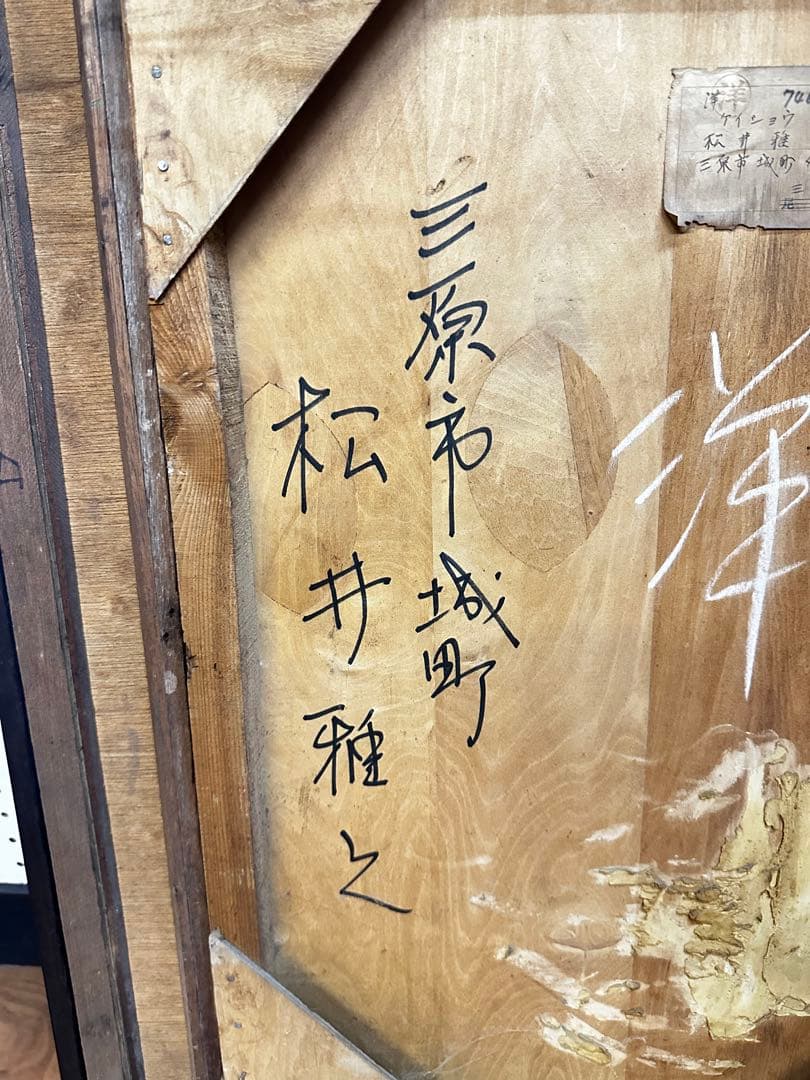 三原市城町
松井雅之
洋 741
ケイショウ
松井雅
三原市城町
三
洋